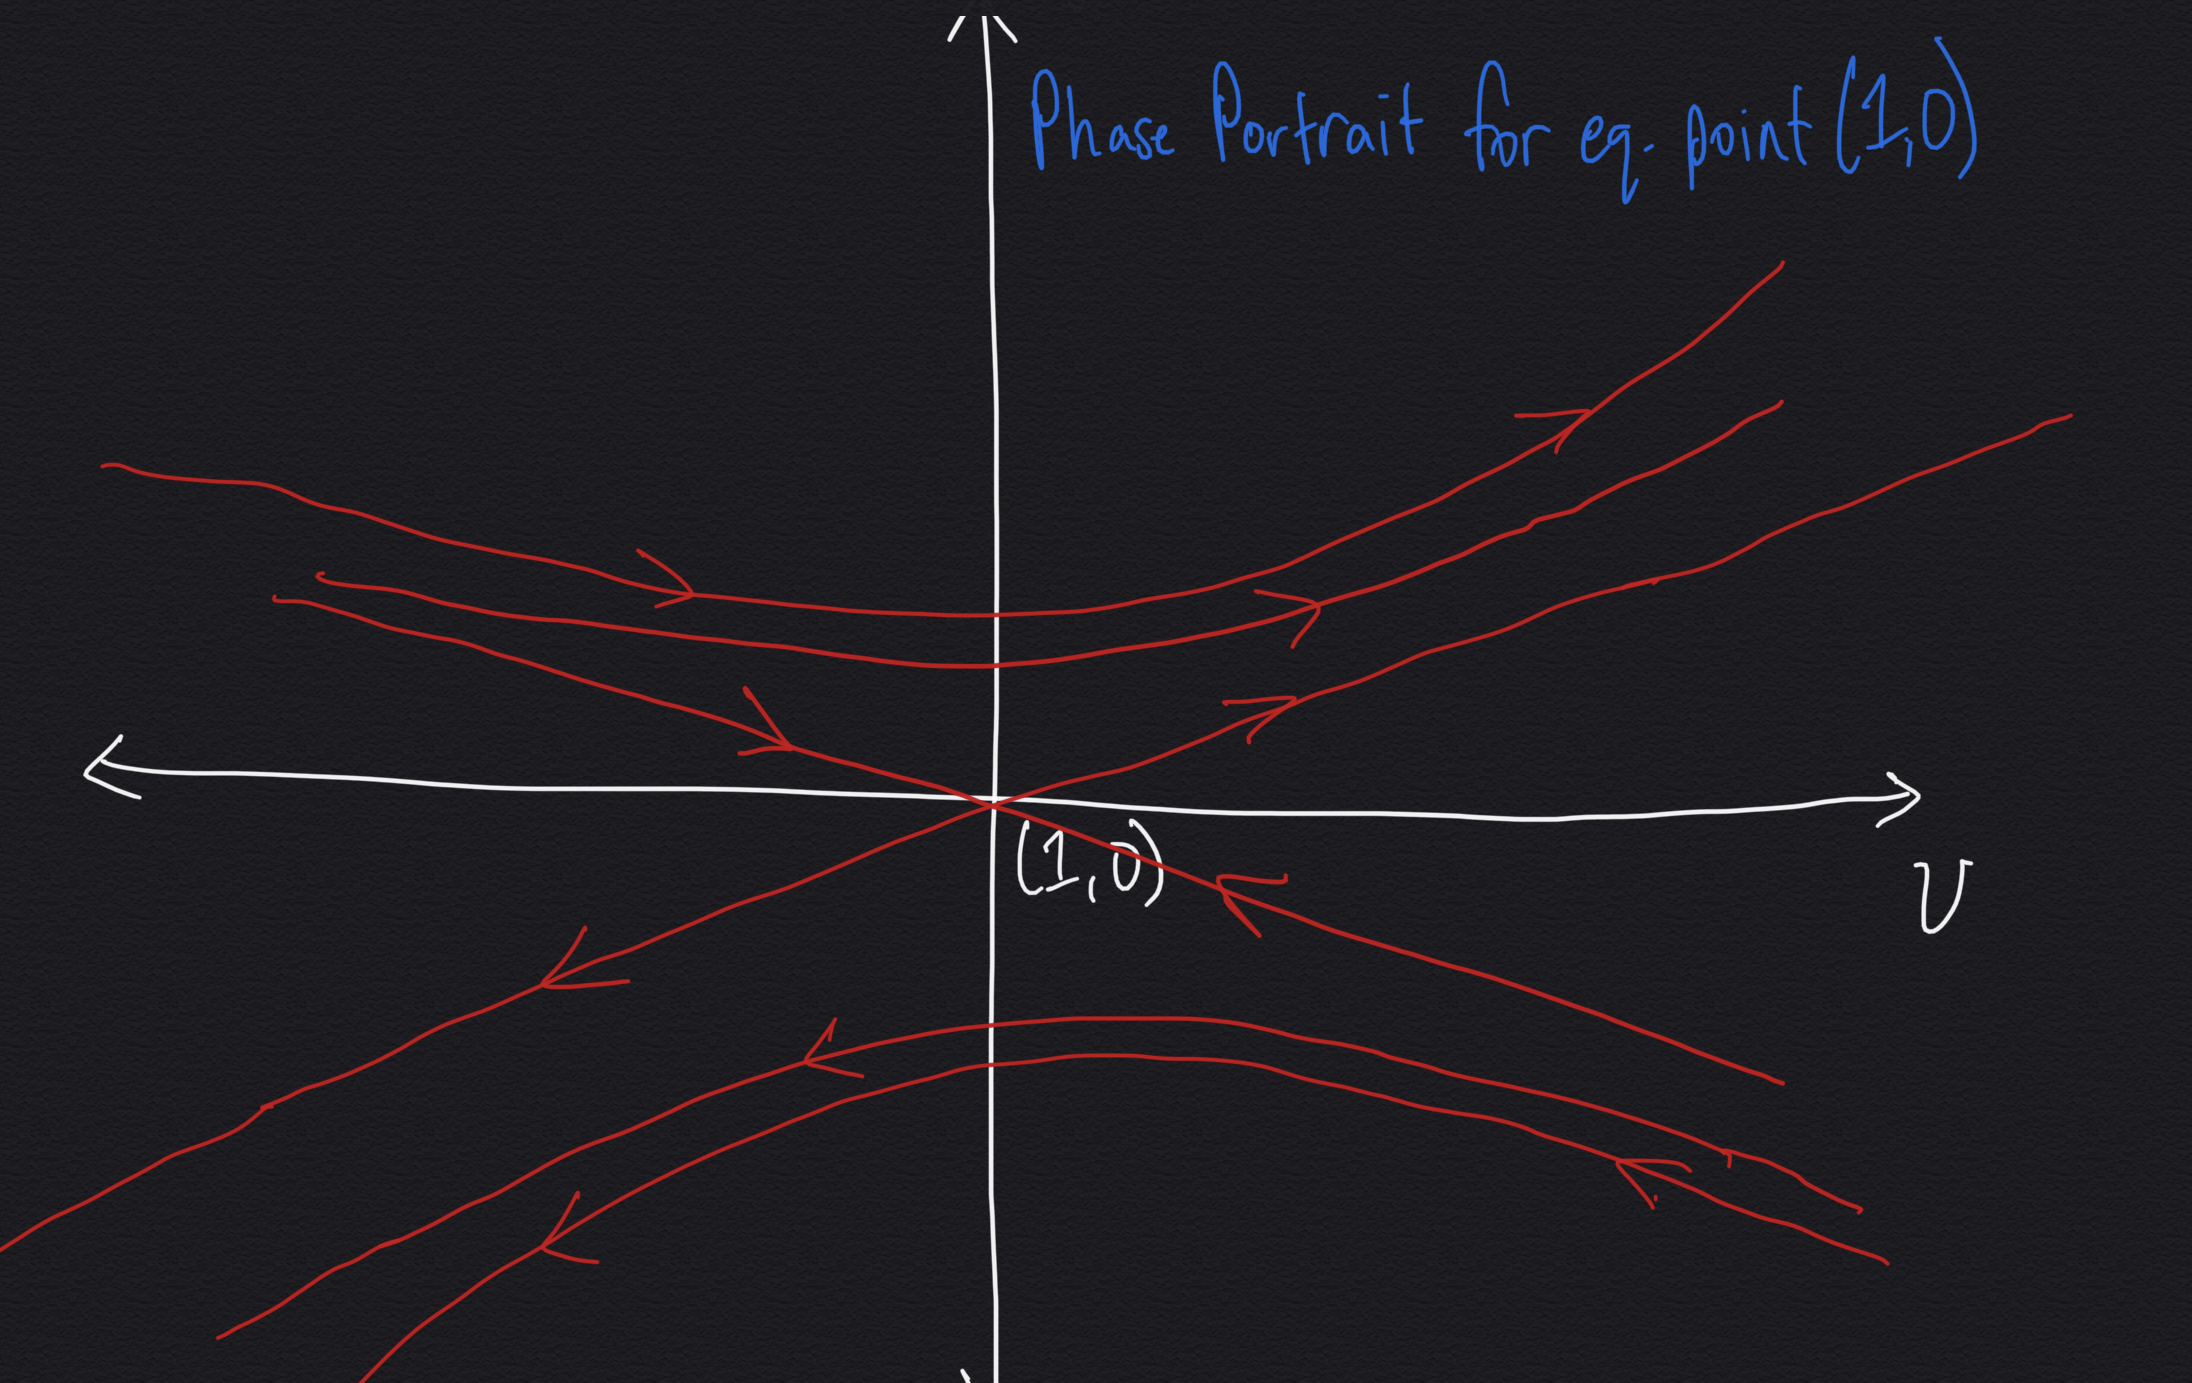 Phase Portrait for eq. point (1,0)
(1,0)
U